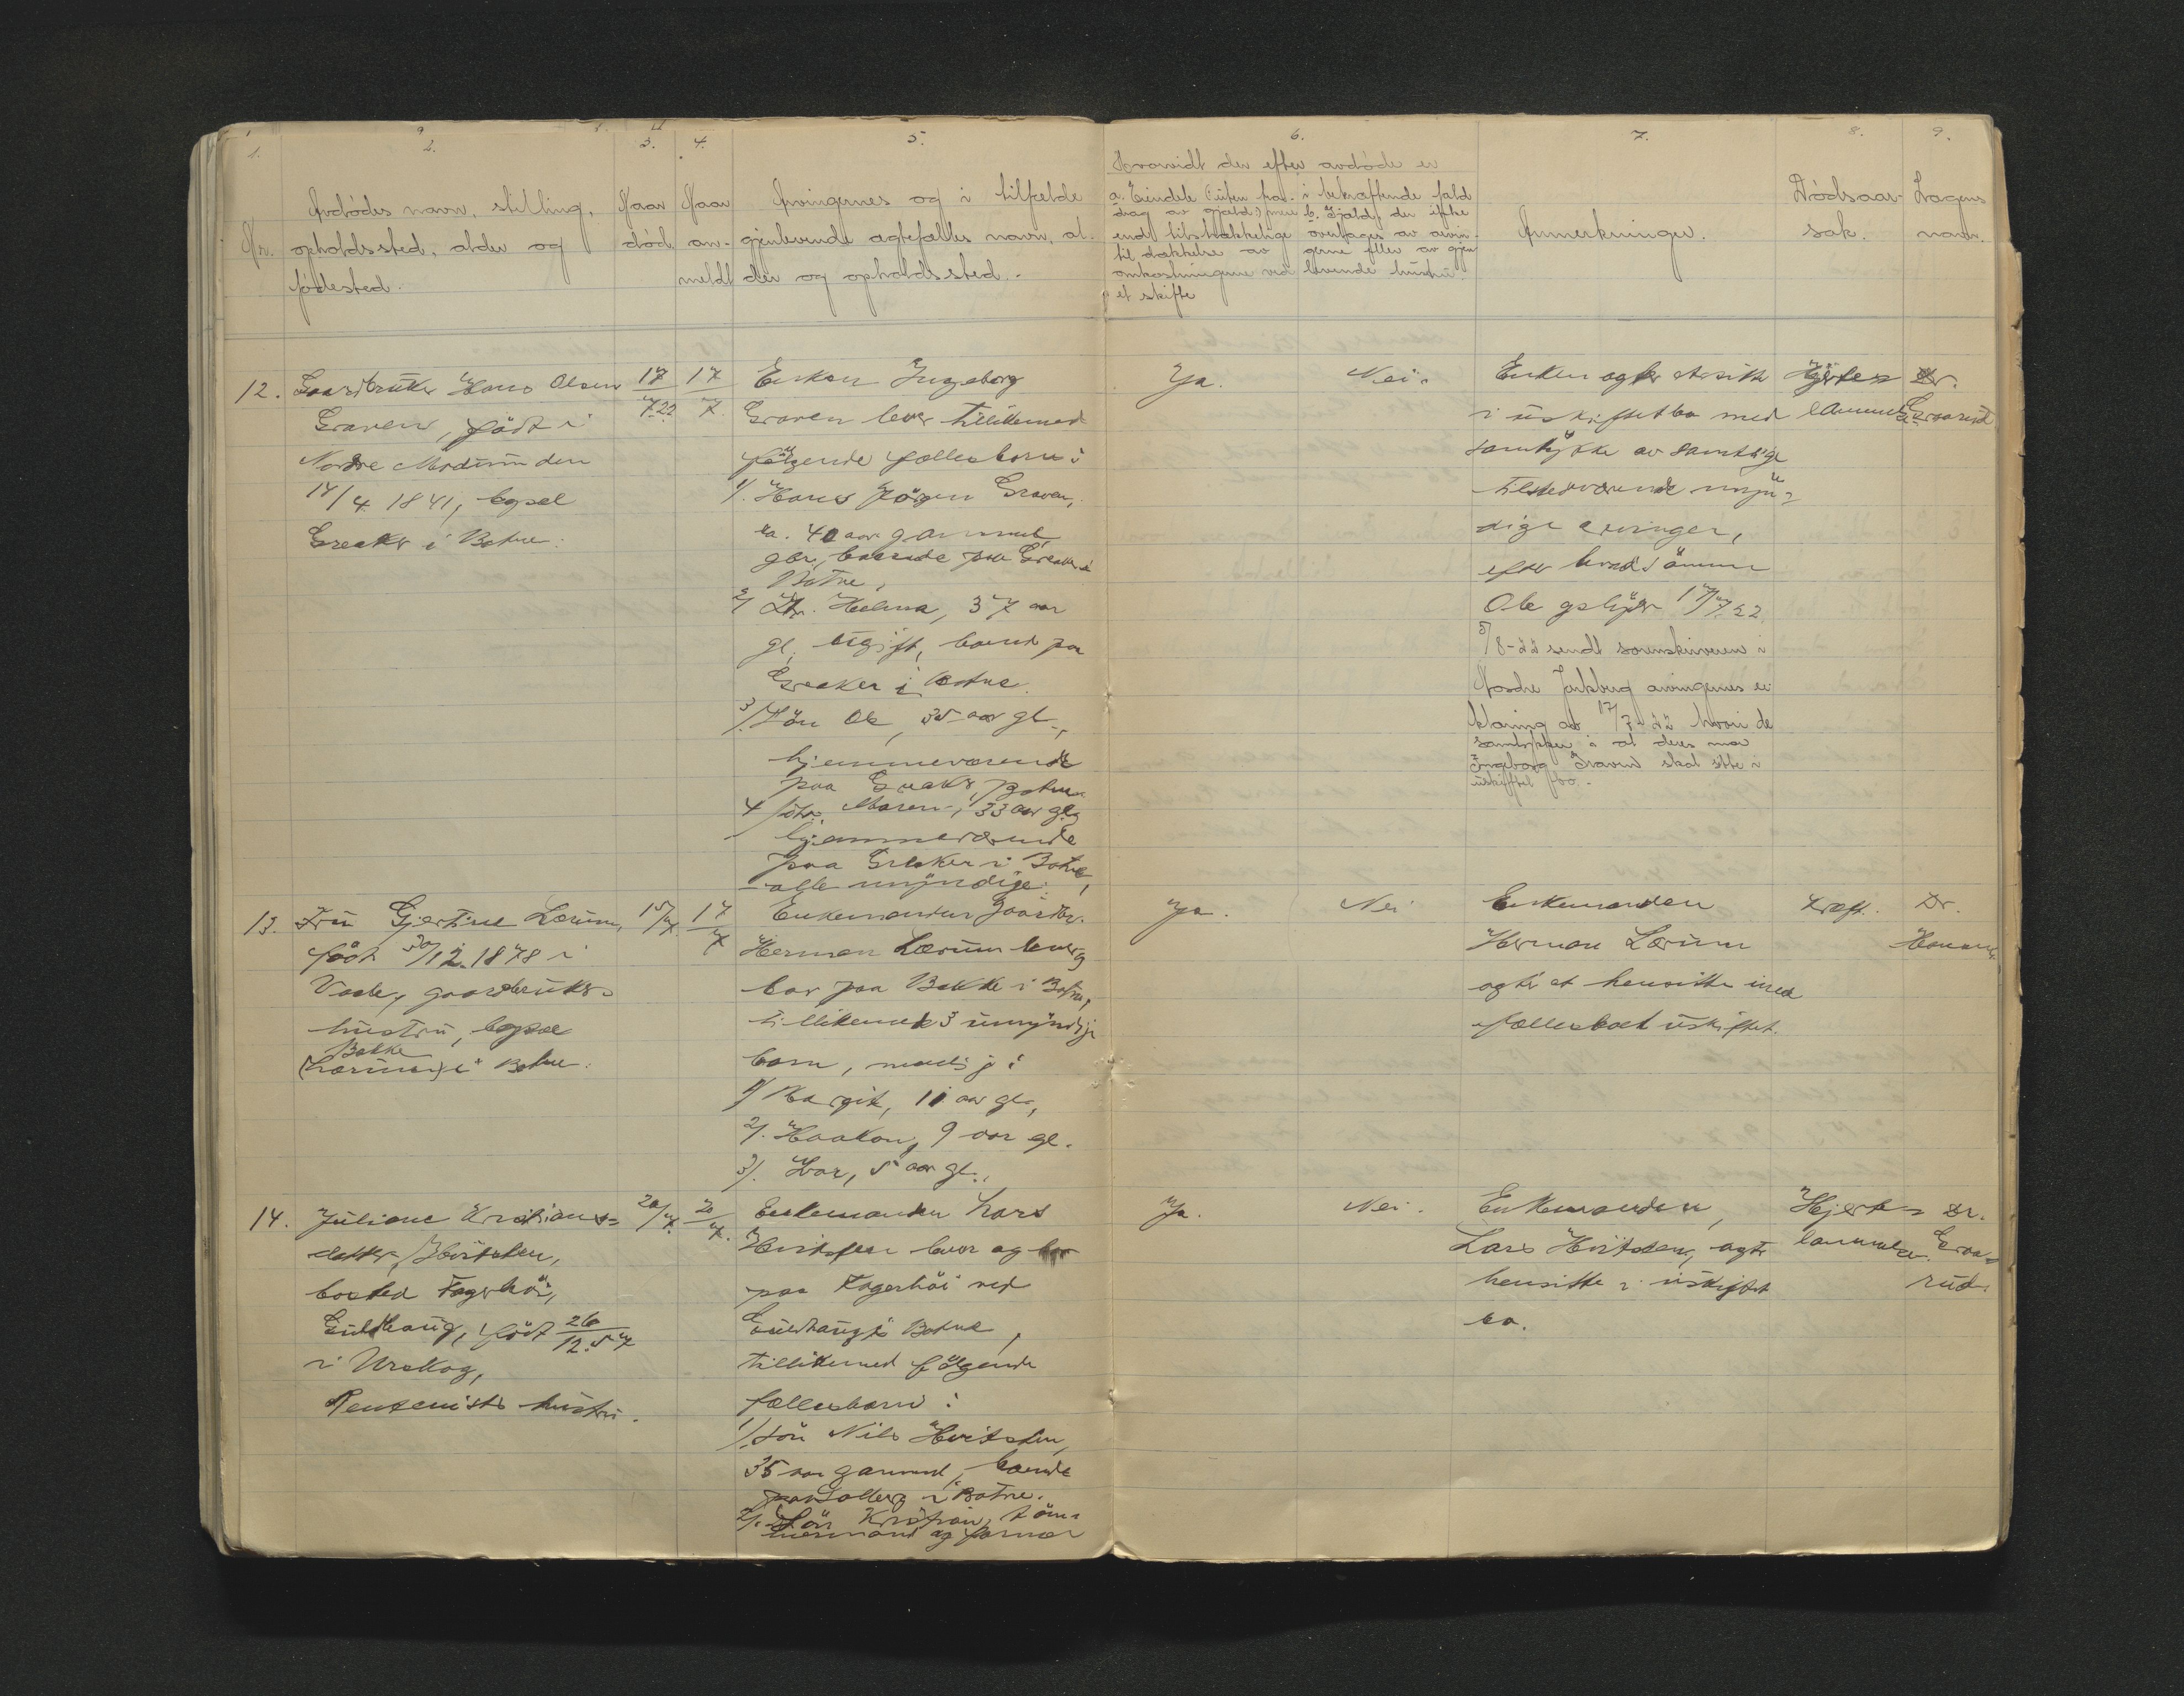 1.
2.
3.
4.
5.
6.
7.
8.
9.
Nr.
Avdødes navn, stilling,
opholdssted, alder og
fødested.
Naar
død.
Naar
an-
meldt
Arvingernes og i tilfælde
gjenlevende ægtefælles navn, al-
der og opholdssted.
Hvorvidt der efter avdøde er
a. Eiendele (uten fra-
drag av gjæld) mere
end tilstrækkelige
til dækkelse av
omkostningerne ved
et skifte
i bekræftende fald
b. Gjæld, der ikke
overtages av arvin-
gerne eller av gjen-
levende hustru.
Anmerkninger.
Dødsaar-
sak.
Lægens
navn.
12.
Gaardbruker Hans Olsen
Graven, født i
Nordre Modum den
14/4 1841, bopæl
Greaker i Botne.
17
7.22
17
7.
Enken Ingeborg
Graven lever tillikemed
følgende fællesbarn:
1/. Hans Jörgen Graven,
ca. 40 aar gammel,
gbr., boende paa Greaker i
Botne,
2/ Dtr. Helena, 37 aar
gl., ugift, boende paa
Greaker i Botne.
3/. Sön Ole, 35 aar gl.,
hjemmeværende
paa Greaker, Botne.
4/ Dtr. Maren, 33 aar gl.,
hjemmeværende
paa Greaker i Botne,
- alle myndige.
Ja.
Nei.
Enken agter at sitte
i uskiftet bo med
samtykke av samtlige
tilstedeværende myn-
dige arvinger,
efter hvad sönnen
Ole opgir 17/7.22.
5/8-22 sendt sorenskriveren i
Nordre Jarlsberg arvingernes er-
klæring av 17/7-22 hvori de
samtykker i at deres mor
Ingeborg Graven skal sitte i
uskiftet bo.
Hjerte-
lammelse
Dr.
Graarud
13.
Fru Gjertine Lærum,
født 30/12.1878 i
Vaale, gaardbruker-
hustru, bopæl
Bakke
(Lærum) i Botne.
15/7.
17
7
Enkemanden Gaardbr.
Herman Lærum lever og
bor paa Bakke i Botne,
tillikemed 3 umyndige
barn, nemlig:
1/ Margit, 11 aar gl.,
2/. Haakon, 9 aar gl.
3/. Ivar, 5 aar gl.,
Ja.
Nei
Enkemanden
Herman Lærum
agter at hensitte med
fællesboet uskiftet.
Kræft.
Dr.
Hammer.
14.
Juliane Kristians-
datter Hvitsten,
bosted Fagerhöi,
Gullhaug, født 26/12.57
i Urskog,
Pensionists hustru.
20/7.
20
7.
Enkemanden Lars
Hvitsten lever og bor
paa Fagerhöi ved
Gullhaug i Botne,
tillikemed følgende
fællesbarn:
1/. Sön Nils Hvitsten,
35 aar gammel, boende
paa Solberg i Botne.
2/. Sön Kristian, töm-
mermand og farmer
Ja.
Nei.
Enkemanden,
Lars Hvitsten, agter
hensitte i uskiftet
bo.
Hjerte-
lammelse.
Dr.
Graa-
rud.